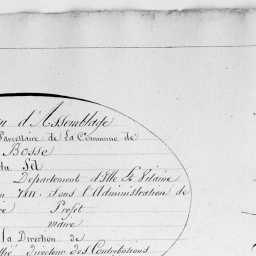 d'Assemblage
Parcellaire de La Commune de
Bosse
du Sel
Département d'Ille & Vilaine
sous l'Administration de
Préfet
maire
la Direction de
directeur des Contributions